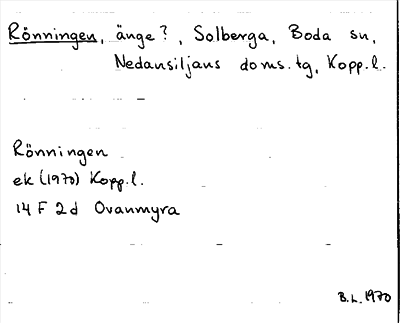 Rönningen, änge?, Solberga, Boda sn,
Nedansiljans doms. tg, Kopp.l.
Rönningen
ek (1970) Kopp.l.
14 F 2d Ovanmyra
B.L. 1970